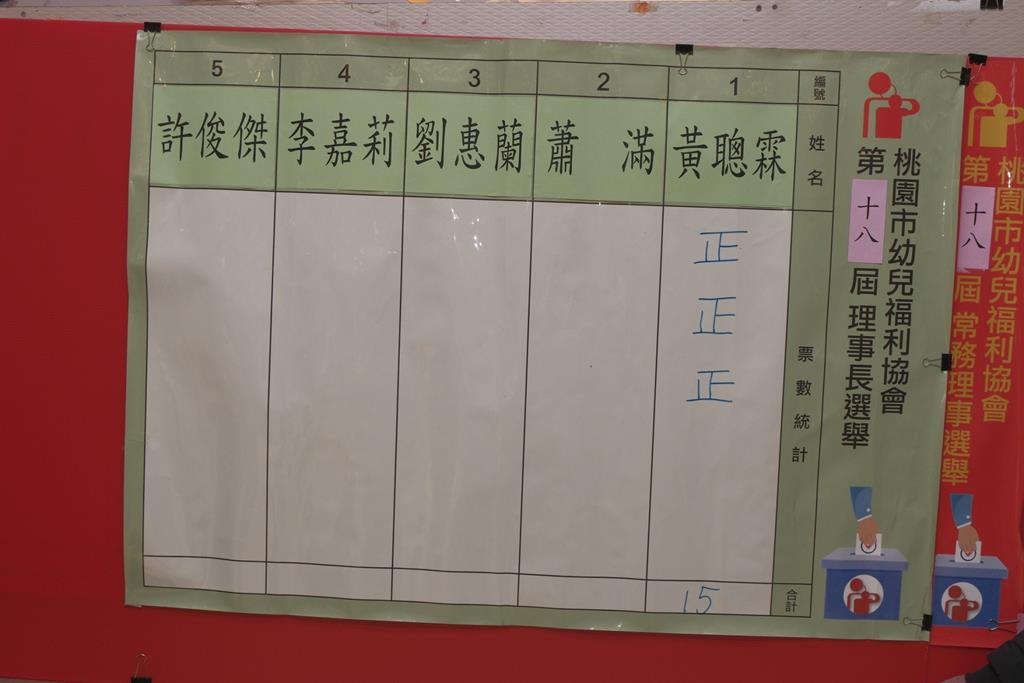 桃園市幼兒福利協會
第十八屆 常務理事選舉
桃園市幼兒福利協會
第十八屆 理事長選舉
編號 1 2 3 4 5
姓名 黃聰霖 蕭滿 劉惠蘭 李嘉莉 許俊傑
票數統計 正 正 正
合計 15